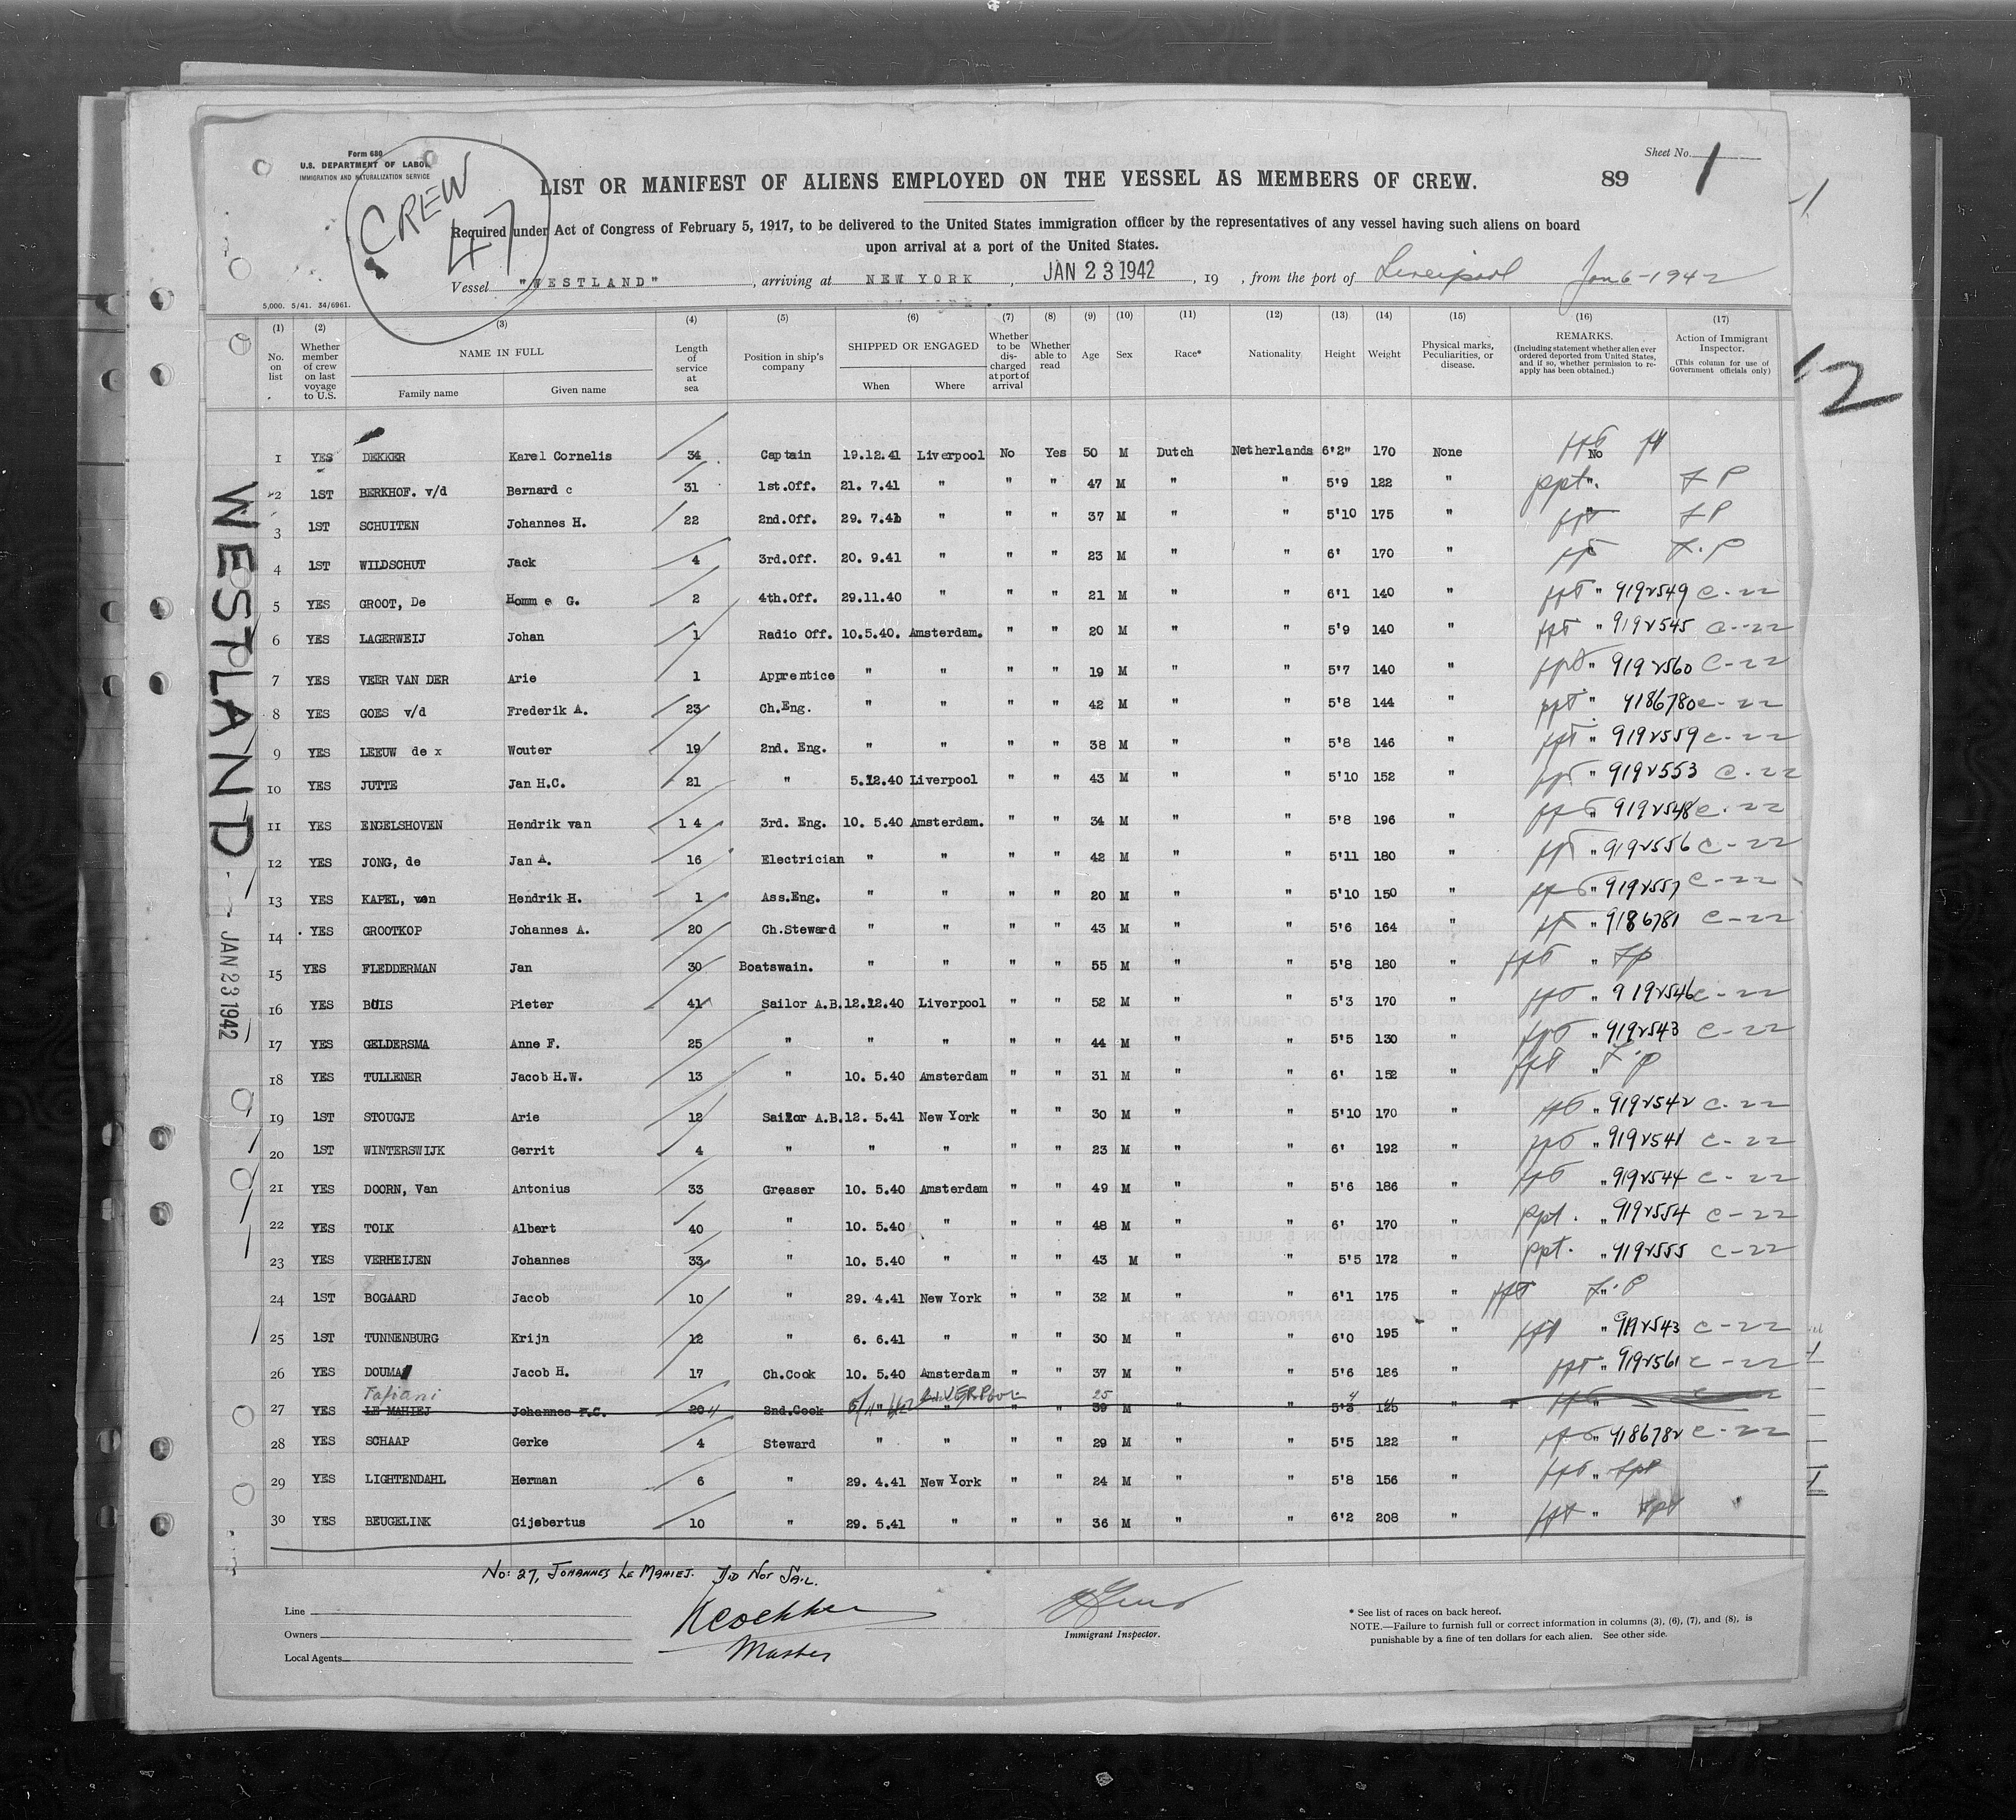 Form 680
U.S. DEPARTMENT OF LABOR
IMMIGRATION AND NATURALIZATION SERVICE
CREW
47
Sheet No. 1
LIST OR MANIFEST OF ALIENS EMPLOYED ON THE VESSEL AS MEMBERS OF CREW.
89
Required under Act of Congress of February 5, 1917, to be delivered to the United States immigration officer by the representatives of any vessel having such aliens on board
upon arrival at a port of the United States.
Vessel "WESTLAND", arriving at NEW YORK, JAN 23 1942, 19 , from the port of Liverpool Jan 6-1942
5,000. 5/41. 34/6961.
(1) (2) (3) (4) (5) (6) (7) (8) (9) (10) (11) (12) (13) (14) (15) (16) (17)
No. on list
Whether member of crew on last voyage to U.S.
NAME IN FULL
Family name
Given name
Length of service at sea
Position in ship's company
SHIPPED OR ENGAGED
When
Where
Whether to be discharged at port of arrival
Whether able to read
Age
Sex
Race*
Nationality
Height
Weight
Physical marks, Peculiarities, or disease.
REMARKS.
(Including statement whether alien ever ordered deported from United States, and if so, whether permission to reapply has been obtained.)
Action of Immigrant Inspector.
(This column for use of Government officials only)
12
WESTLAND
JAN 23 1942
1 YES DEKKER Karel Cornelis 34 Captain 19.12.41 Liverpool No Yes 50 M Dutch Netherlands 6'2" 170 None No
2 1ST BERKHOF. v/d Bernard c 31 1st.Off. 21. 7.41 " " " 47 M " " 5'9 122 " ppt. "
3 1ST SCHUITEN Johannes H. 22 2nd.Off. 29. 7.41 " " " 37 M " " 5'10 175 " ppt "
4 1ST WILDSCHUT Jack 4 3rd.Off. 20. 9.41 " " " 23 M " " 6' 170 " ppt
5 YES GROOT, De Homme G. 2 4th.Off. 29.11.40 " " " 21 M " " 6'1 140 " ppt " 9192549 C-22
6 YES LAGERWEIJ Johan 1 Radio Off. 10.5.40. Amsterdam. " " 20 M " " 5'9 140 " ppt " 9192545 C-22
7 YES VEER VAN DER Arie 1 Apprentice " " " " 19 M " " 5'7 140 " ppt " 9192560 C-22
8 YES GOES v/d Frederik A. 23 Ch.Eng. " " " " 42 M " " 5'8 144 " ppt " 9186780 C-22
9 YES LEEUW de x Wouter 19 2nd. Eng. " " " " 38 M " " 5'8 146 " ppt " 9192559 C-22
10 YES JUTTE Jan H.C. 21 " 5.12.40 Liverpool " " 43 M " " 5'10 152 " ppt " 9192553 C-22
11 YES ENGELSHOVEN Hendrik van 14 3rd. Eng. 10. 5.40 Amsterdam. " " 34 M " " 5'8 196 " ppt " 9192548 C-22
12 YES JONG, de Jan A. 16 Electrician " " " " 42 M " " 5'11 180 " ppt " 9192556 C-22
13 YES KAPEL, van Hendrik H. 1 Ass.Eng. " " " " 20 M " " 5'10 150 " ppt " 9192557 C-22
14 YES GROOTKOP Johannes A. 20 Ch.Steward " " " " 43 M " " 5'6 164 " ppt " 9186781 C-22
15 YES FLEDDERMAN Jan 30 Boatswain. " " " " 55 M " " 5'8 180 " ppt "
16 YES BUIS Pieter 41 Sailor A.B. 12.12.40 Liverpool " " 52 M " " 5'3 170 " ppt " 9192546 C-22
17 YES GELDERSMA Anne F. 25 " " " " " 44 M " " 5'5 130 " ppt " 9192543 C-22
18 YES TULLENER Jacob H.W. 13 " 10. 5.40 Amsterdam " " 31 M " " 6' 152 " ppt "
19 1ST STOUGJE Arie 12 Sailor A.B. 12. 5.41 New York " " 30 M " " 5'10 170 " ppt " 9192542 C-22
20 1ST WINTERSWIJK Gerrit 4 " " " " " 23 M " " 6' 192 " ppt " 9192541 C-22
21 YES DOORN, Van Antonius 33 Greaser 10. 5.40 Amsterdam " " 49 M " " 5'6 186 " ppt " 9192544 C-22
22 YES TOLK Albert 40 " 10. 5.40 " " " 48 M " " 6' 170 " ppt. " 9192554 C-22
23 YES VERHEIJEN Johannes 33 " 10. 5.40 " " " 43 M " " 5'5 172 " ppt. " 9192555 C-22
24 1ST BOGAARD Jacob 10 " 29. 4.41 New York " " 32 M " " 6'1 175 " ppt "
25 1ST TUNNENBURG Krijn 12 " 6. 6.41 " " " 30 M " " 6'0 195 " ppt " C-22
26 YES DOUMA Jacob H. 17 Ch.Cook 10. 5.40 Amsterdam " " 37 M " " 5'6 186 " ppt " 9192561 C-22
27 YES LE MAHIEJ Johannes F.C. 20 2nd.Cook " LIVERPOOL " " " 25 39 M " " 5'3 "
28 YES SCHAAP Gerke 4 Steward " " " " 29 M " " 5'5 122 " ppt " 9186782 C-22
29 YES LIGHTENDAHL Herman 6 " 29. 4.41 New York " " 24 M " " 5'8 156 " ppt "
30 YES BEUGELINK Gijsbertus 10 " 29. 5.41 " " " 36 M " " 6'2 208 " ppt "
No: 27, JOHANNES LE MAHIEJ. DID NOT SAIL.
Line
Owners
Local Agents
Master
Immigrant Inspector.
* See list of races on back hereof.
NOTE.—Failure to furnish full or correct information in columns (3), (6), (7), and (8), is
punishable by a fine of ten dollars for each alien. See other side.